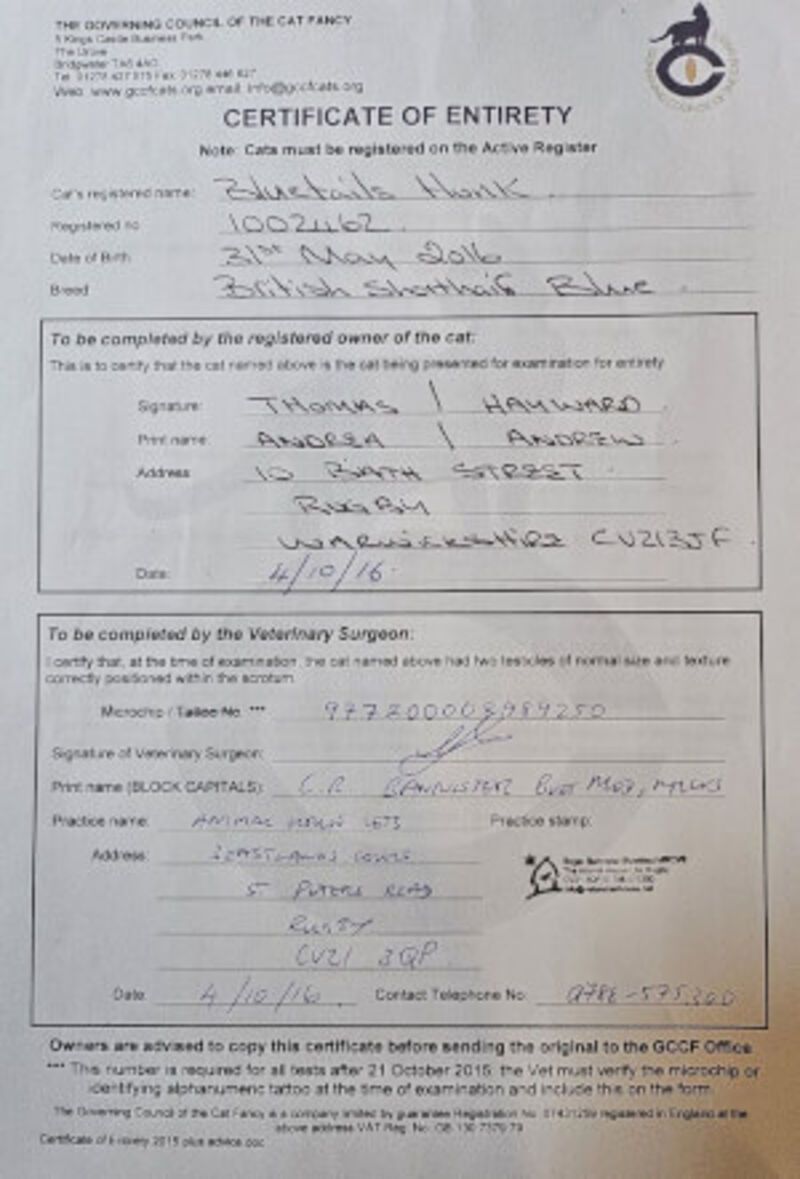 THE GOVERNING COUNCIL OF THE CAT FANCY
5 Kings Castle Business Park
The Drove
Bridgwater TA6 4AG
Tel 01278 427 575 Fax 01278 446 627
Web www.gccfcats.org email info@gccfcats.org
CERTIFICATE OF ENTIRETY
Note: Cats must be registered on the Active Register
Cat's registered name: Bluetails Hunk
Registered no 1002462
Date of Birth 31st May 2016
Breed British Shorthair Blue
To be completed by the registered owner of the cat:
This is to certify that the cat named above is the cat being presented for examination for entirety
Signature: THOMAS / HAYWARD
Print name: ANDREA / ANDREW
Address 10 BATH STREET
RUGBY
WARWICKSHIRE CV213JF
Date: 4/10/16
To be completed by the Veterinary Surgeon:
I certify that, at the time of examination, the cat named above had two testicles of normal size and texture
correctly positioned within the scrotum
Microchip / Tattoo No. *** 977200008989250
Signature of Veterinary Surgeon:
Print name (BLOCK CAPITALS): C R BANNISTER
Practice name: ANIMAL VETS
Practice stamp:
Address: EASTLANDS COURT
ST PETERS ROAD
RUGBY
CV21 3QP
Date 4/10/16 Contact Telephone No: 0788-575300
Owners are advised to copy this certificate before sending the original to the GCCF Office
*** This number is required for all tests after 21 October 2015, the Vet must verify the microchip or
identifying alphanumeric tattoo at the time of examination and include this on the form.
The Governing Council of the Cat Fancy is a company limited by guarantee Registration No. registered in England at the
above address VAT Reg. No. GB
Certificate of Entirety 2015 plus advice.doc